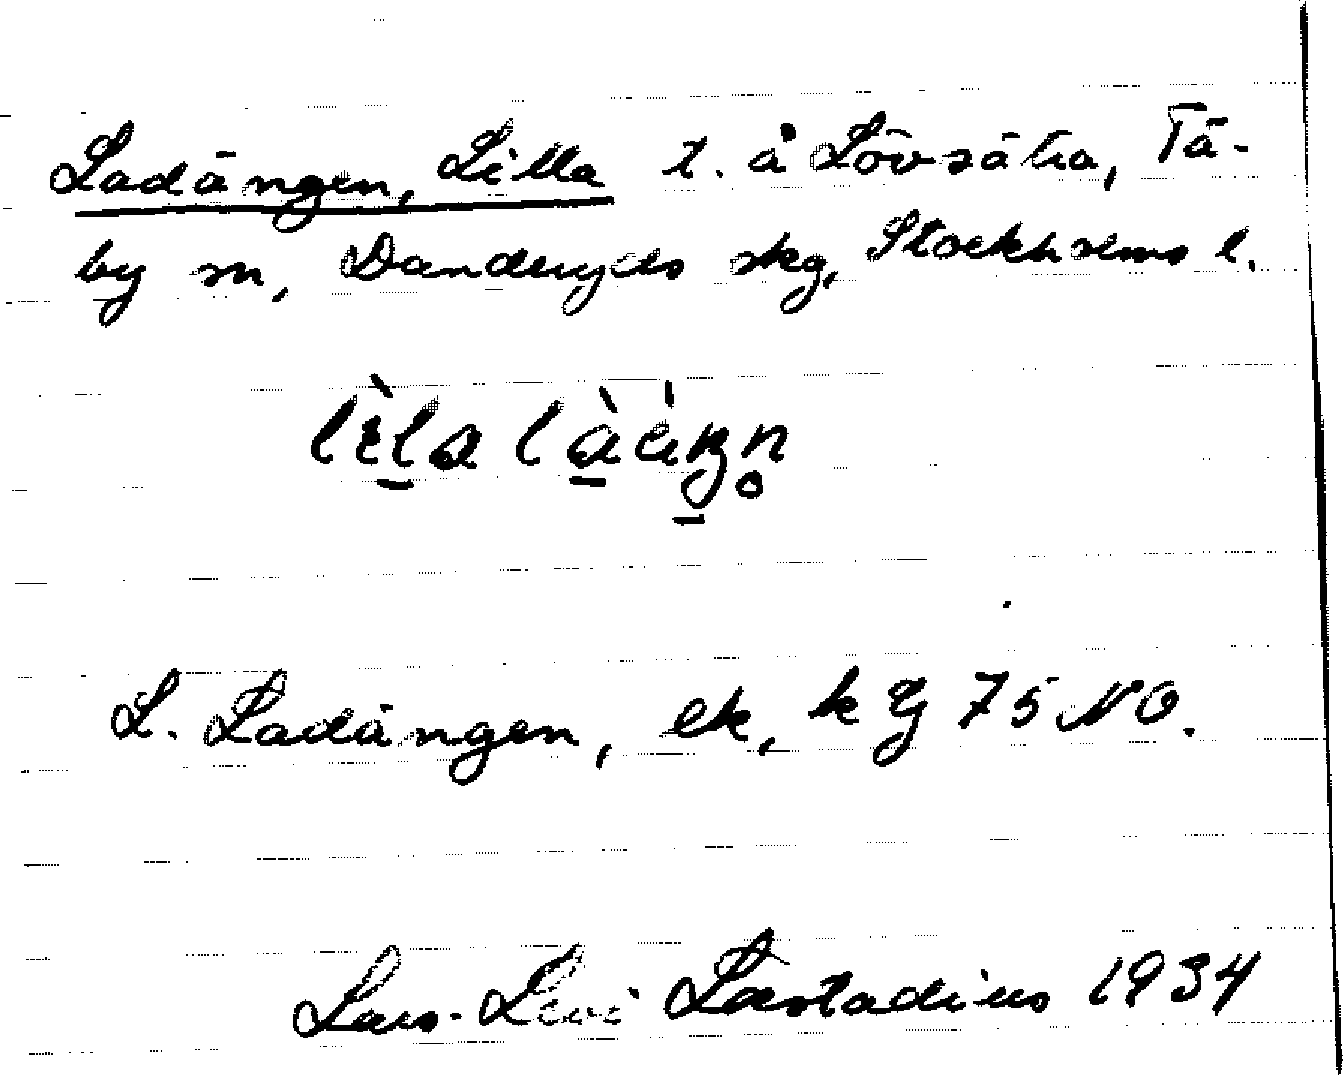 Ladängen, Lilla t. å Lövsätra, Tä-
by sn, Danderyds skg, Stockholms l.
L. Ladängen, ek, k Bl 75 NO.
Lars-Levi Læstadius 1934